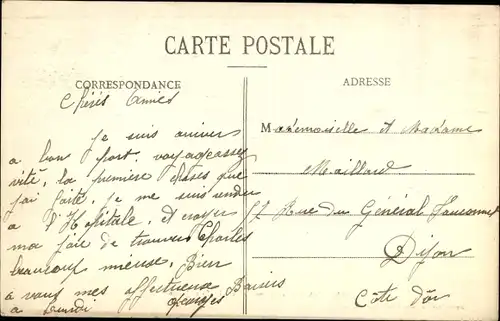 CARTE POSTALE
CORRESPONDANCE
Chères Amies
Je suis arriver
a bon port. voyage assez
vite, la première choses que
j'ai faite, Je me suis rendu
a l'Hopitale, et croyez
ma joie de trouver Charles
beaucoup mieuse. Bien
a vous mes affectueux Baisers
a Lundi Georges
ADRESSE
Mademoiselle et Madame
Maillard
Rue du Général
Dijon
Côte d'or